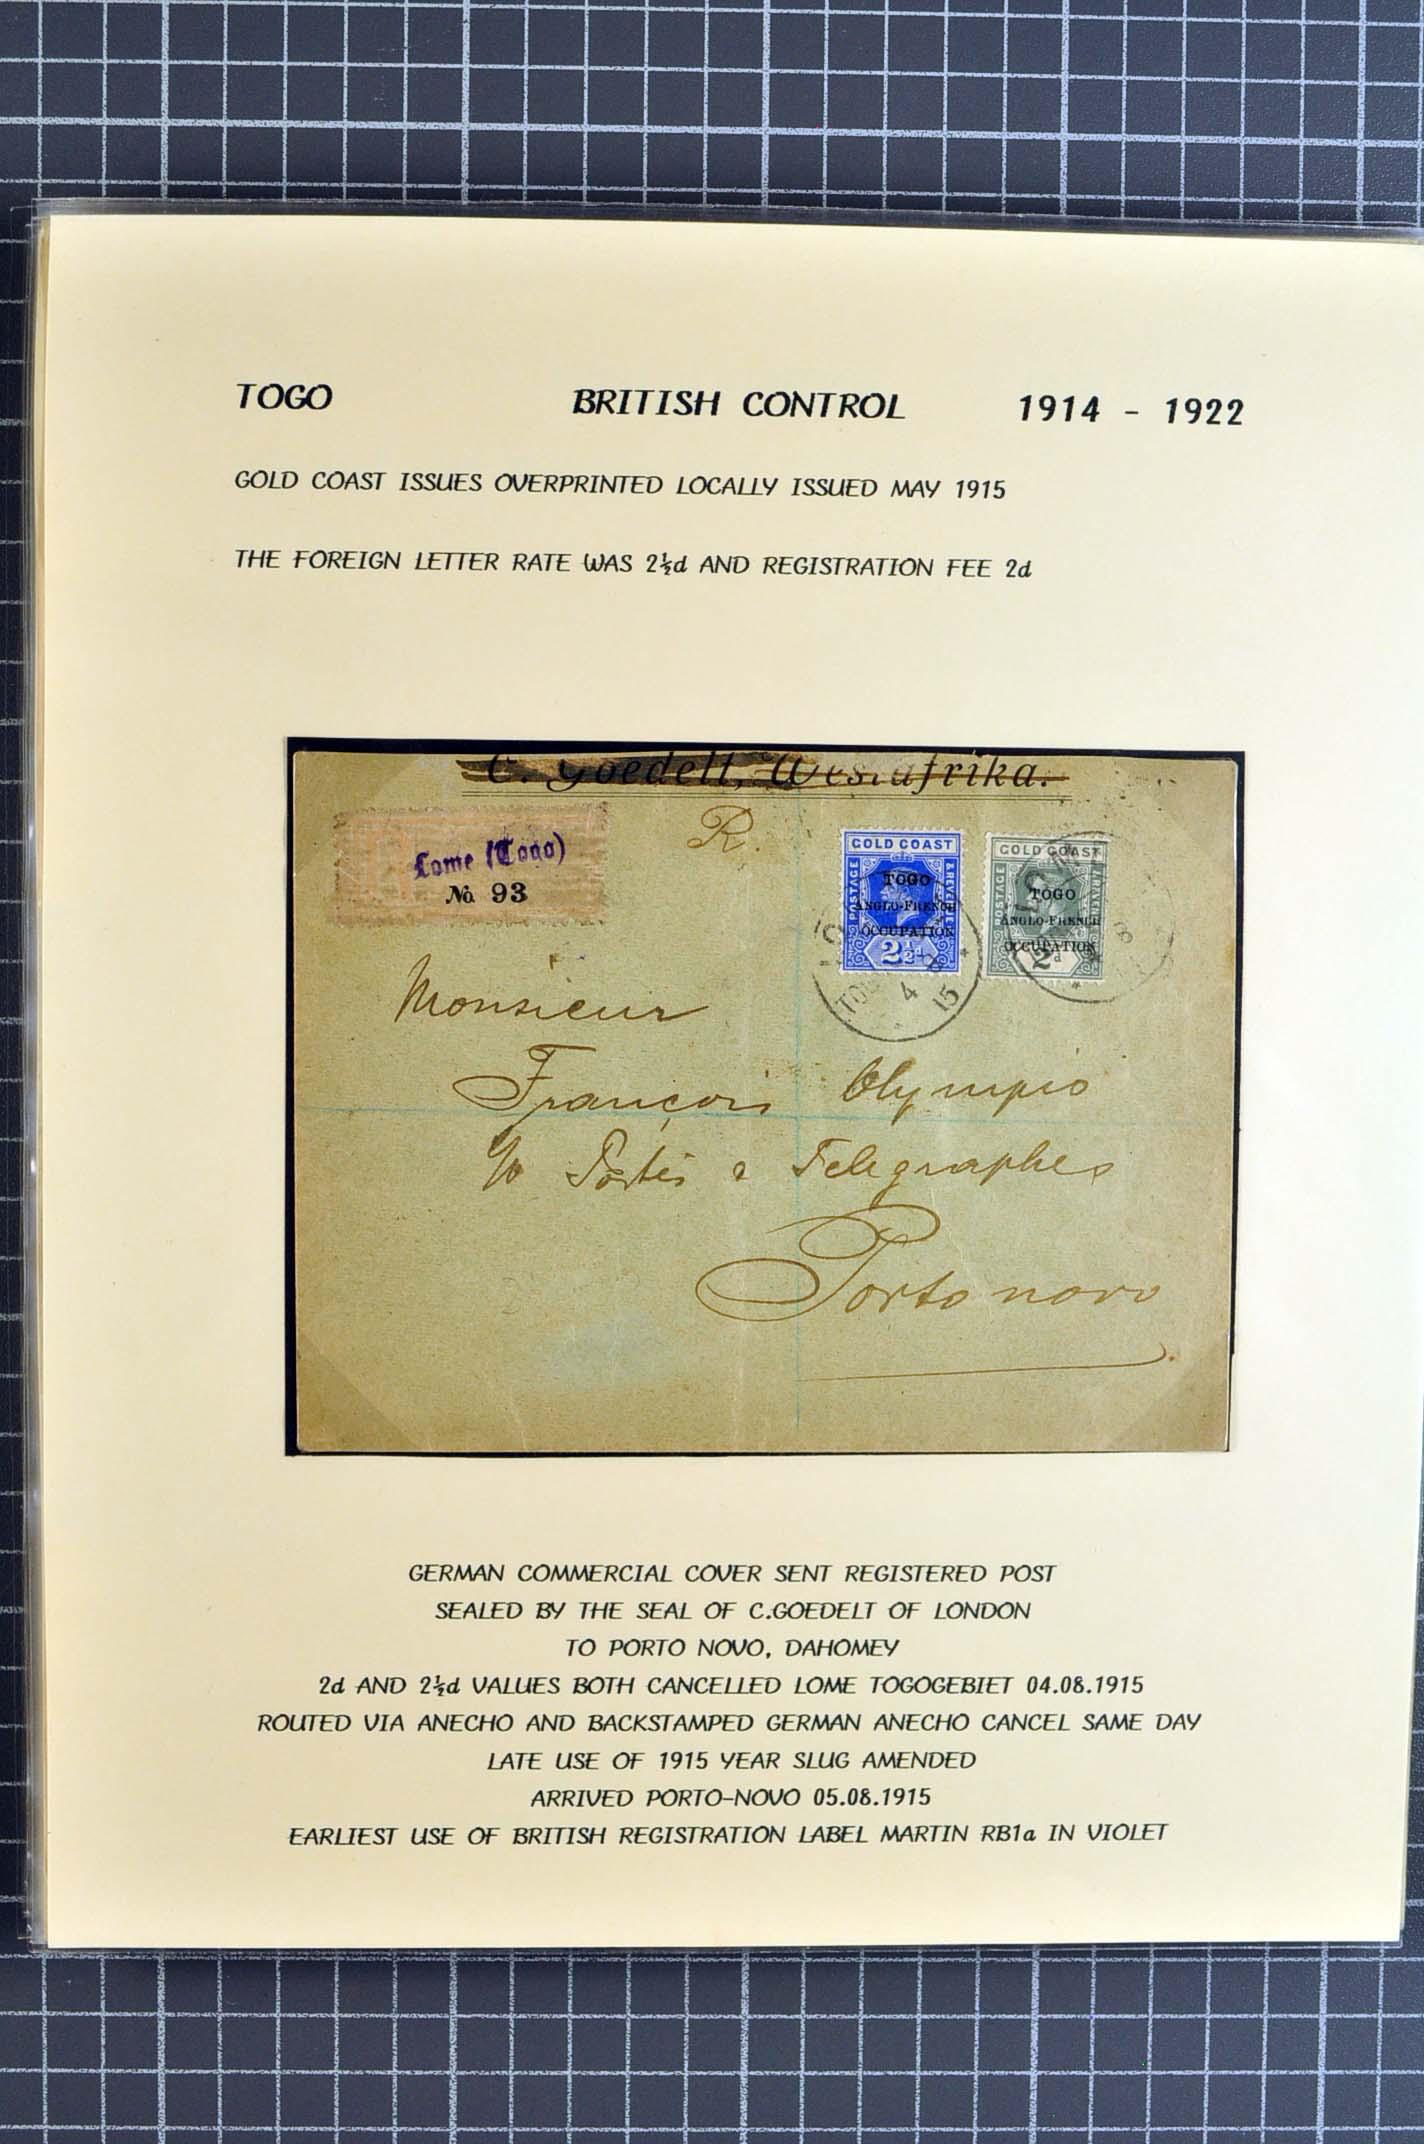 TOGO BRITISH CONTROL 1914 - 1922
GOLD COAST ISSUES OVERPRINTED LOCALLY ISSUED MAY 1915
THE FOREIGN LETTER RATE WAS 2½d AND REGISTRATION FEE 2d
C. Goedelt, Westafrika.
R.
Lome (Togo)
No 93
GOLD COAST
POSTAGE & REVENUE
TOGO
ANGLO-FRENCH
OCCUPATION
2½d
4 8
15
GOLD COAST
TOGO
ANGLO-FRENCH
OCCUPATION
2d
8
Monsieur
François Olympio
c/o Postes & Telegraphes
Porto novo
GERMAN COMMERCIAL COVER SENT REGISTERED POST
SEALED BY THE SEAL OF C.GOEDELT OF LONDON
TO PORTO NOVO, DAHOMEY
2d AND 2½d VALUES BOTH CANCELLED LOME TOGOGEBIET 04.08.1915
ROUTED VIA ANECHO AND BACKSTAMPED GERMAN ANECHO CANCEL SAME DAY
LATE USE OF 1915 YEAR SLUG AMENDED
ARRIVED PORTO-NOVO 05.08.1915
EARLIEST USE OF BRITISH REGISTRATION LABEL MARTIN RB1a IN VIOLET